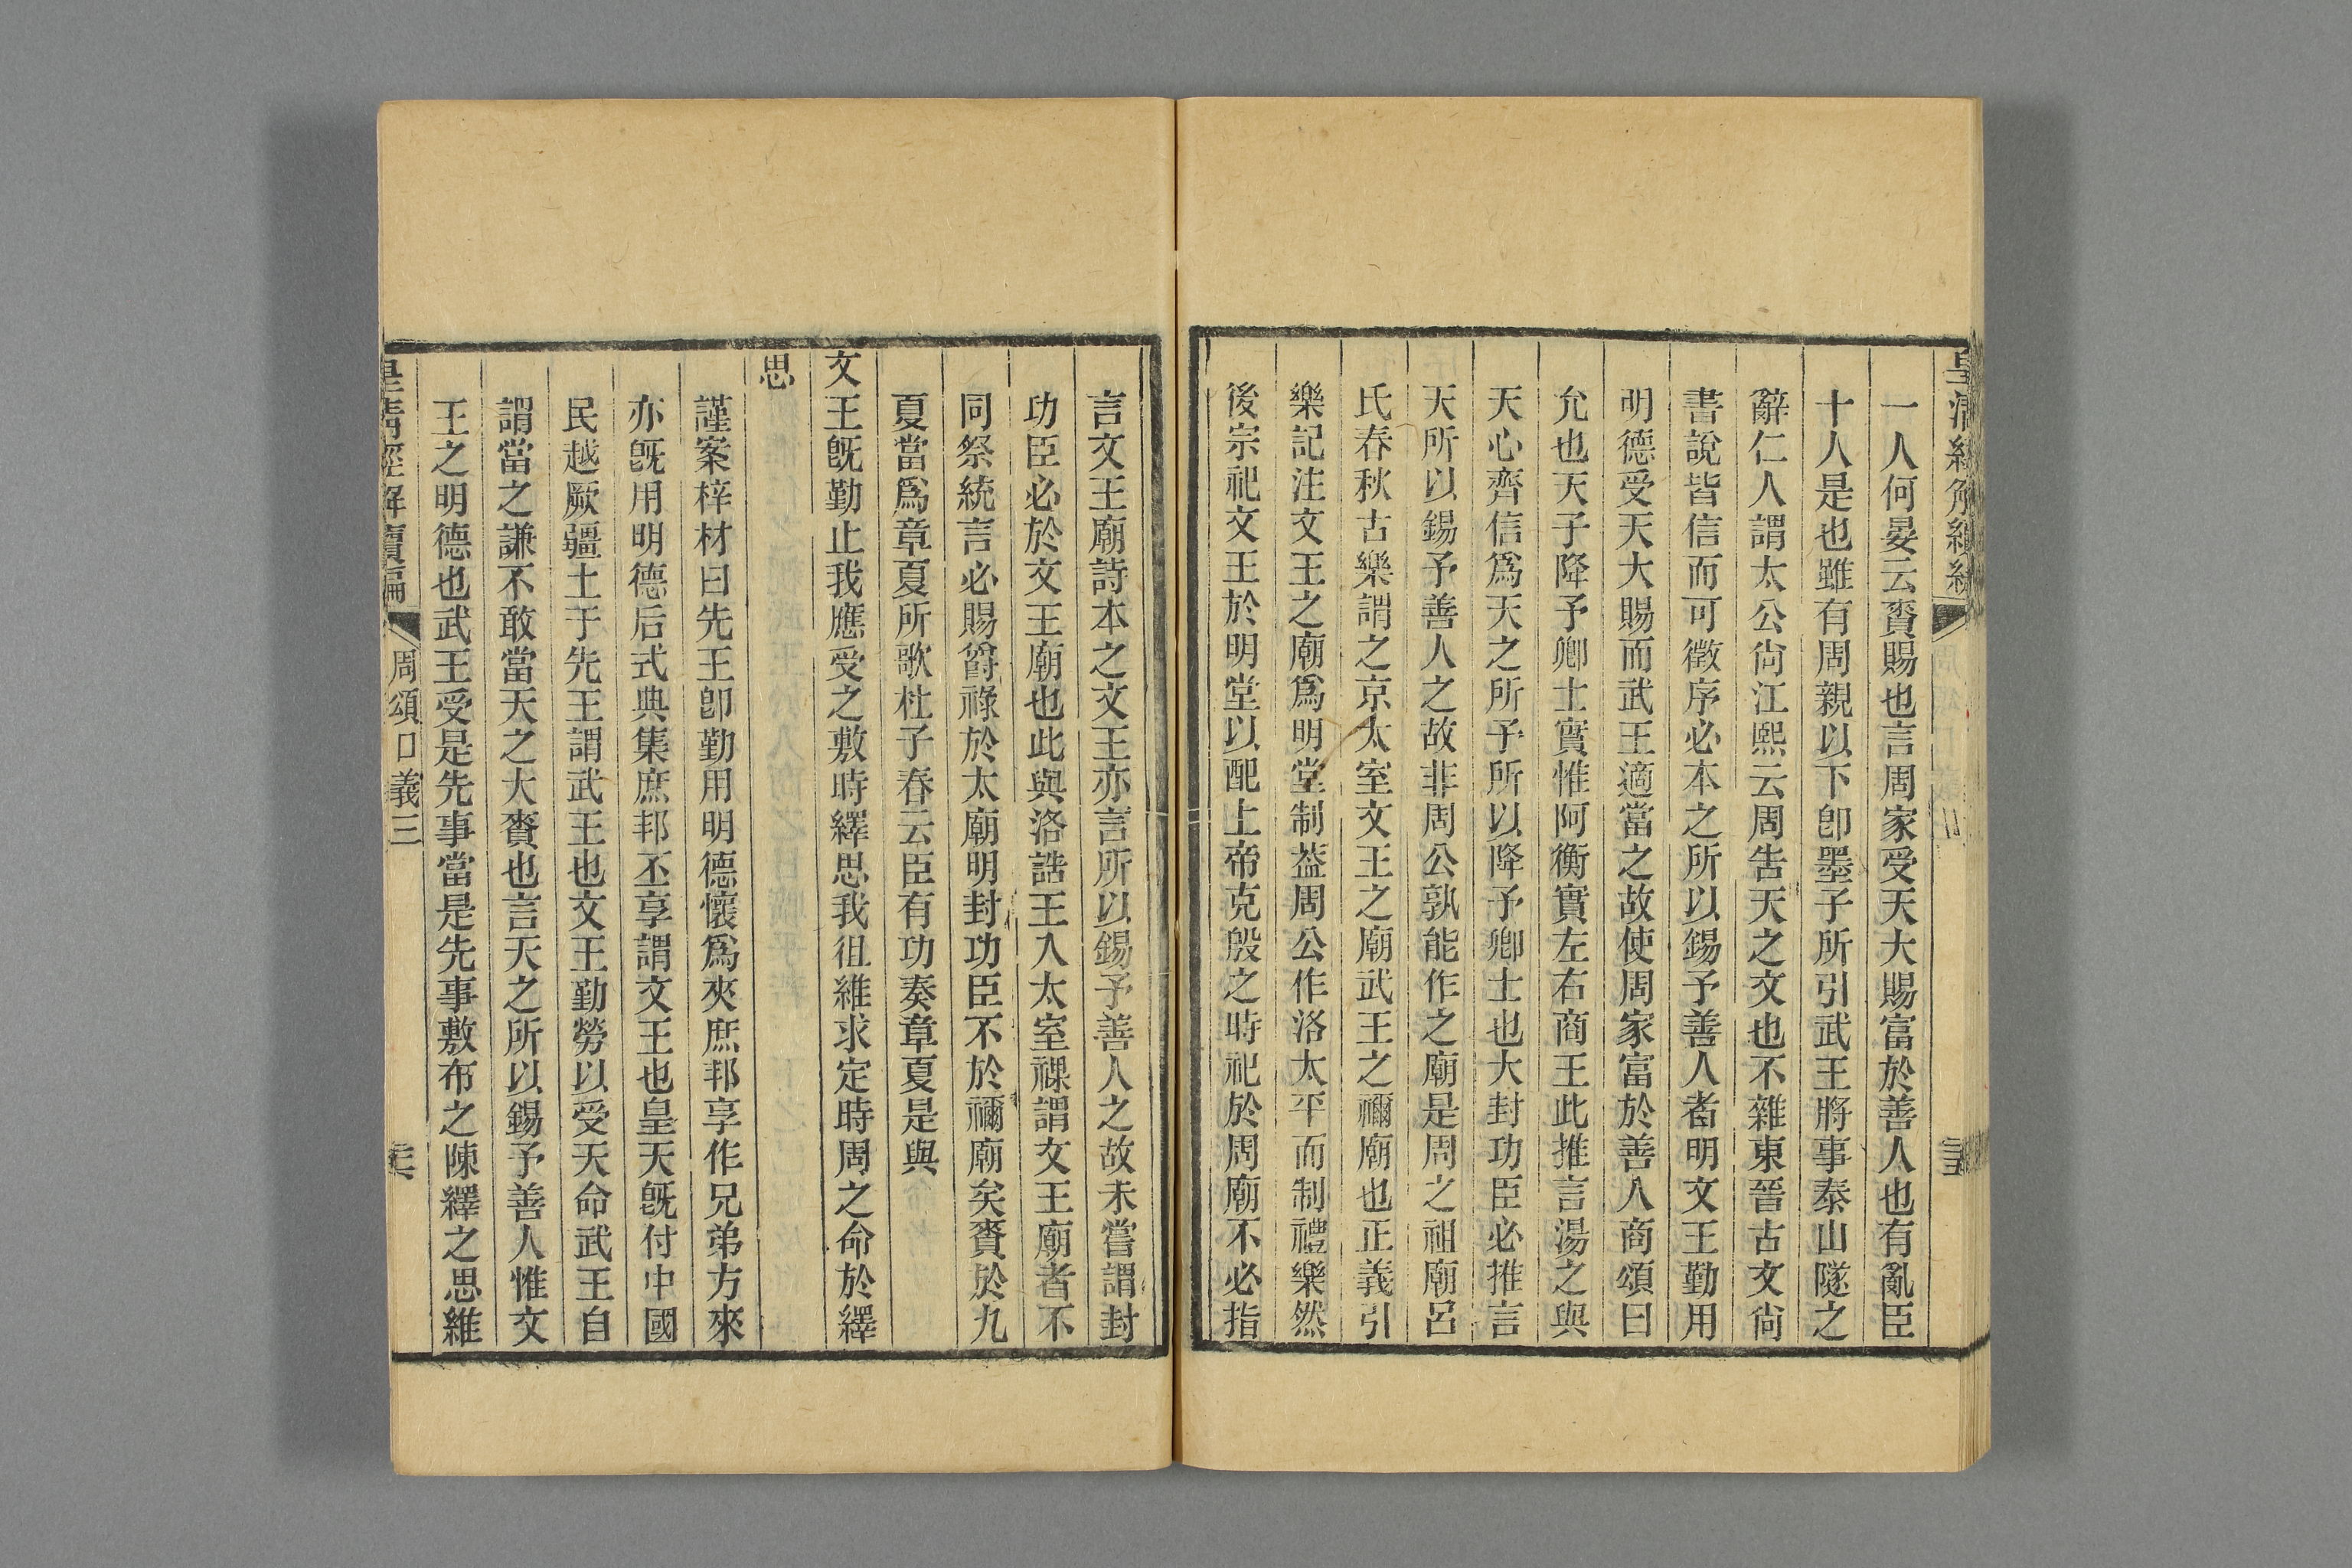 一人何晏云賚賜也言周家受天大賜富於善人也有亂臣
十人是也雖有周親以下卽墨子所引武王將事泰山隧之
辭仁人謂太公尙江熙云周告天之文也不雜東晉古文尙
書說皆信而可徵序必本之所以錫予善人者明文王勤用
明德受天大賜而武王適當之故使周家富於善人商頌曰
允也天子降予卿士實惟阿衡實左右商王此推言湯之與
天心齊信爲天之所予所以降予卿士也大封功臣必推言
天所以錫予善人之故非周公孰能作之廟是周之祖廟呂
氏春秋古樂謂之京太室文王之廟武王之禰廟也正義引
樂記注文王之廟爲明堂制葢周公作洛太平而制禮樂然
後宗祀文王於明堂以配上帝克殷之時祀於周廟不必指
言文王廟詩本之文王亦言所以錫予善人之故未嘗謂封
功臣必於文王廟也此與洛誥王入太室祼謂文王廟者不
同祭統言必賜爵祿於太廟明封功臣不於禰廟矣賚於九
夏當爲章夏所歌杜子春云臣有功奏章夏是與
文王旣勤止我應受之敷時繹思我徂維求定時周之命於繹
思
謹案梓材曰先王卽勤用明德懷爲夾庶邦享作兄弟方來
亦旣用明德后式典集庶邦丕享謂文王也皇天旣付中國
民越厥疆土于先王謂武王也文王勤勞以受天命武王自
謂當之謙不敢當天之大賚也言天之所以錫予善人惟文
王之明德也武王受是先事當是先事敷布之陳繹之思維
皇淸經解續編 周頌口義三